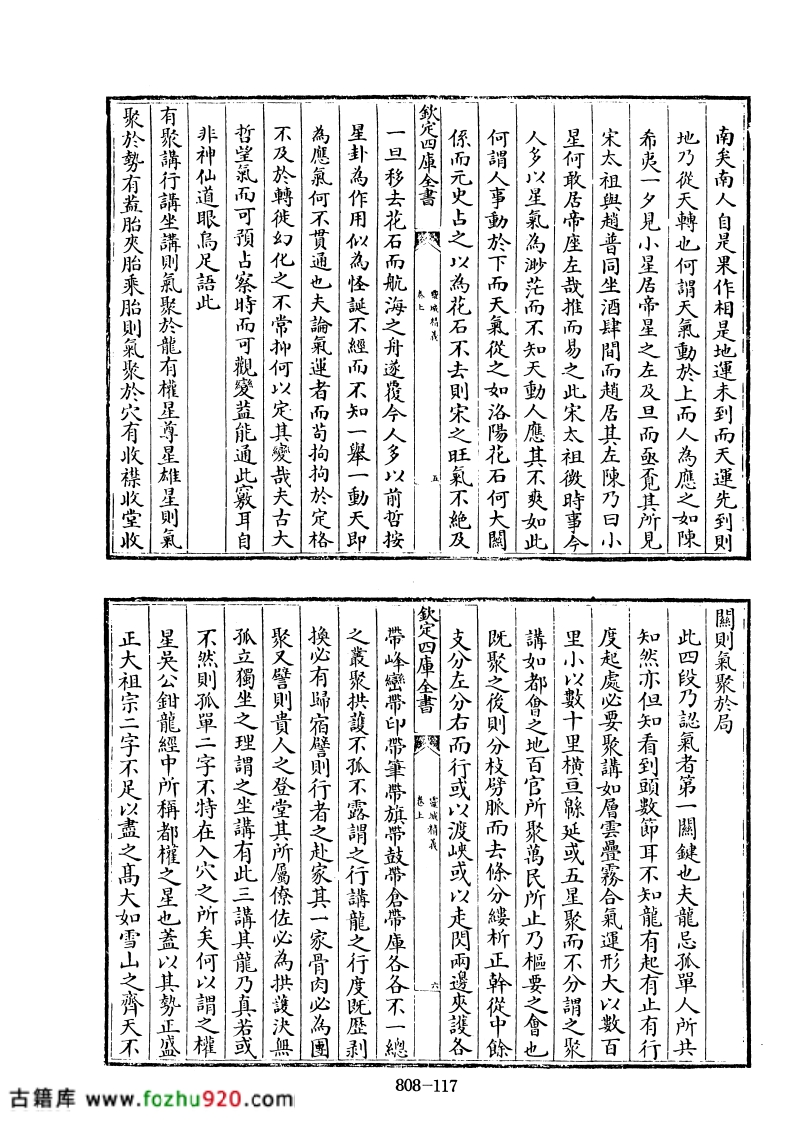 南矣南人自是果作相是地運未到而天運先到則
地乃從天轉也何謂天氣動於上而人為應之如陳
希夷一夕見小星居帝星之左及旦而亟覔其所見
宋太祖與趙普同坐酒肆間而趙居其左陳乃曰小
星何敢居帝座左哉推而易之此宋太祖微時事今
人多以星氣為渺茫而不知天動人應其不爽如此
何謂人事動於下而天氣從之如洛陽花石何大關
係而元史占之以為花石不去則宋之旺氣不絶及
欽定四庫全書
靈城精義
卷上
五
一旦移去花石而航海之舟遂覆今人多以前哲按
星卦為作用似為怪誕不經而不知一舉一動天即
為應氣何不貫通也夫論氣運者而苟拘拘於定格
不及於轉徙幻化之不常抑何以定其變哉夫古大
哲望氣而可預占察時而可觀變葢能通此竅耳自
非神仙道眼烏足語此
有聚講行講坐講則氣聚於龍有權星尊星雄星則氣
聚於勢有葢胎夾胎乘胎則氣聚於穴有收襟收堂收
關則氣聚於局
此四段乃認氣者第一關鍵也夫龍忌孤單人所共
知然亦但知看到頭數節耳不知龍有起有止有行
度起處必要聚講如層雲疊霧合氣運形大以數百
里小以數十里橫亘緜延或五星聚而不分謂之聚
講如都會之地百官所聚萬民所止乃樞要之會也
既聚之後則分枝劈脈而去條分縷析正幹從中餘
支分左分右而行或以渡峽或以走閃兩邊夾護各
欽定四庫全書
靈城精義
卷上
六
帶峰巒帶印帶筆帶旗帶鼓帶倉帶庫各各不一總
之叢聚拱護不孤不露謂之行講龍之行度既歴剥
換必有歸宿譬則行者之赴家其一家骨肉必為團
聚又譬則貴人之登堂其所屬僚佐必為拱護決無
孤立獨坐之理謂之坐講有此三講其龍乃真若或
不然則孤單二字不特在入穴之所矣何以謂之權
星吳公鉗龍經中所稱都權之星也葢以其勢正盛
正大祖宗二字不足以盡之髙大如雪山之齊天不
808-117
古籍库 www.fozhu920.com